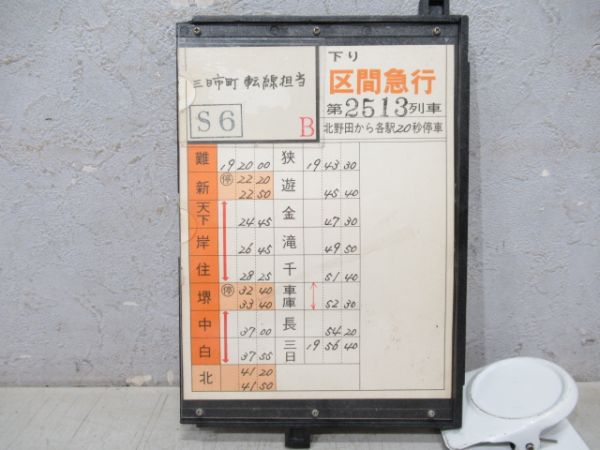 三日市町 転線担当
S6
B
下り
区間急行
第2513列車
北野田から各駅20秒停車
難 19 20 00
新 停 22 20
22 50
天下 24 45
岸 26 45
住 28 25
堺 停 32 40
33 40
中 37 00
白 37 55
北 41 20
41 50
狭 19 43 30
遊 45 40
金 47 30
滝 49 50
千 51 40
車庫 52 30
長 54 20
三日 19 56 40